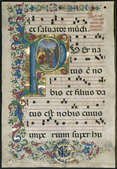 et saluator mūdi
PUer na
tus ē no
bis et filius da
tus est nobis cuius
impe rium super hu